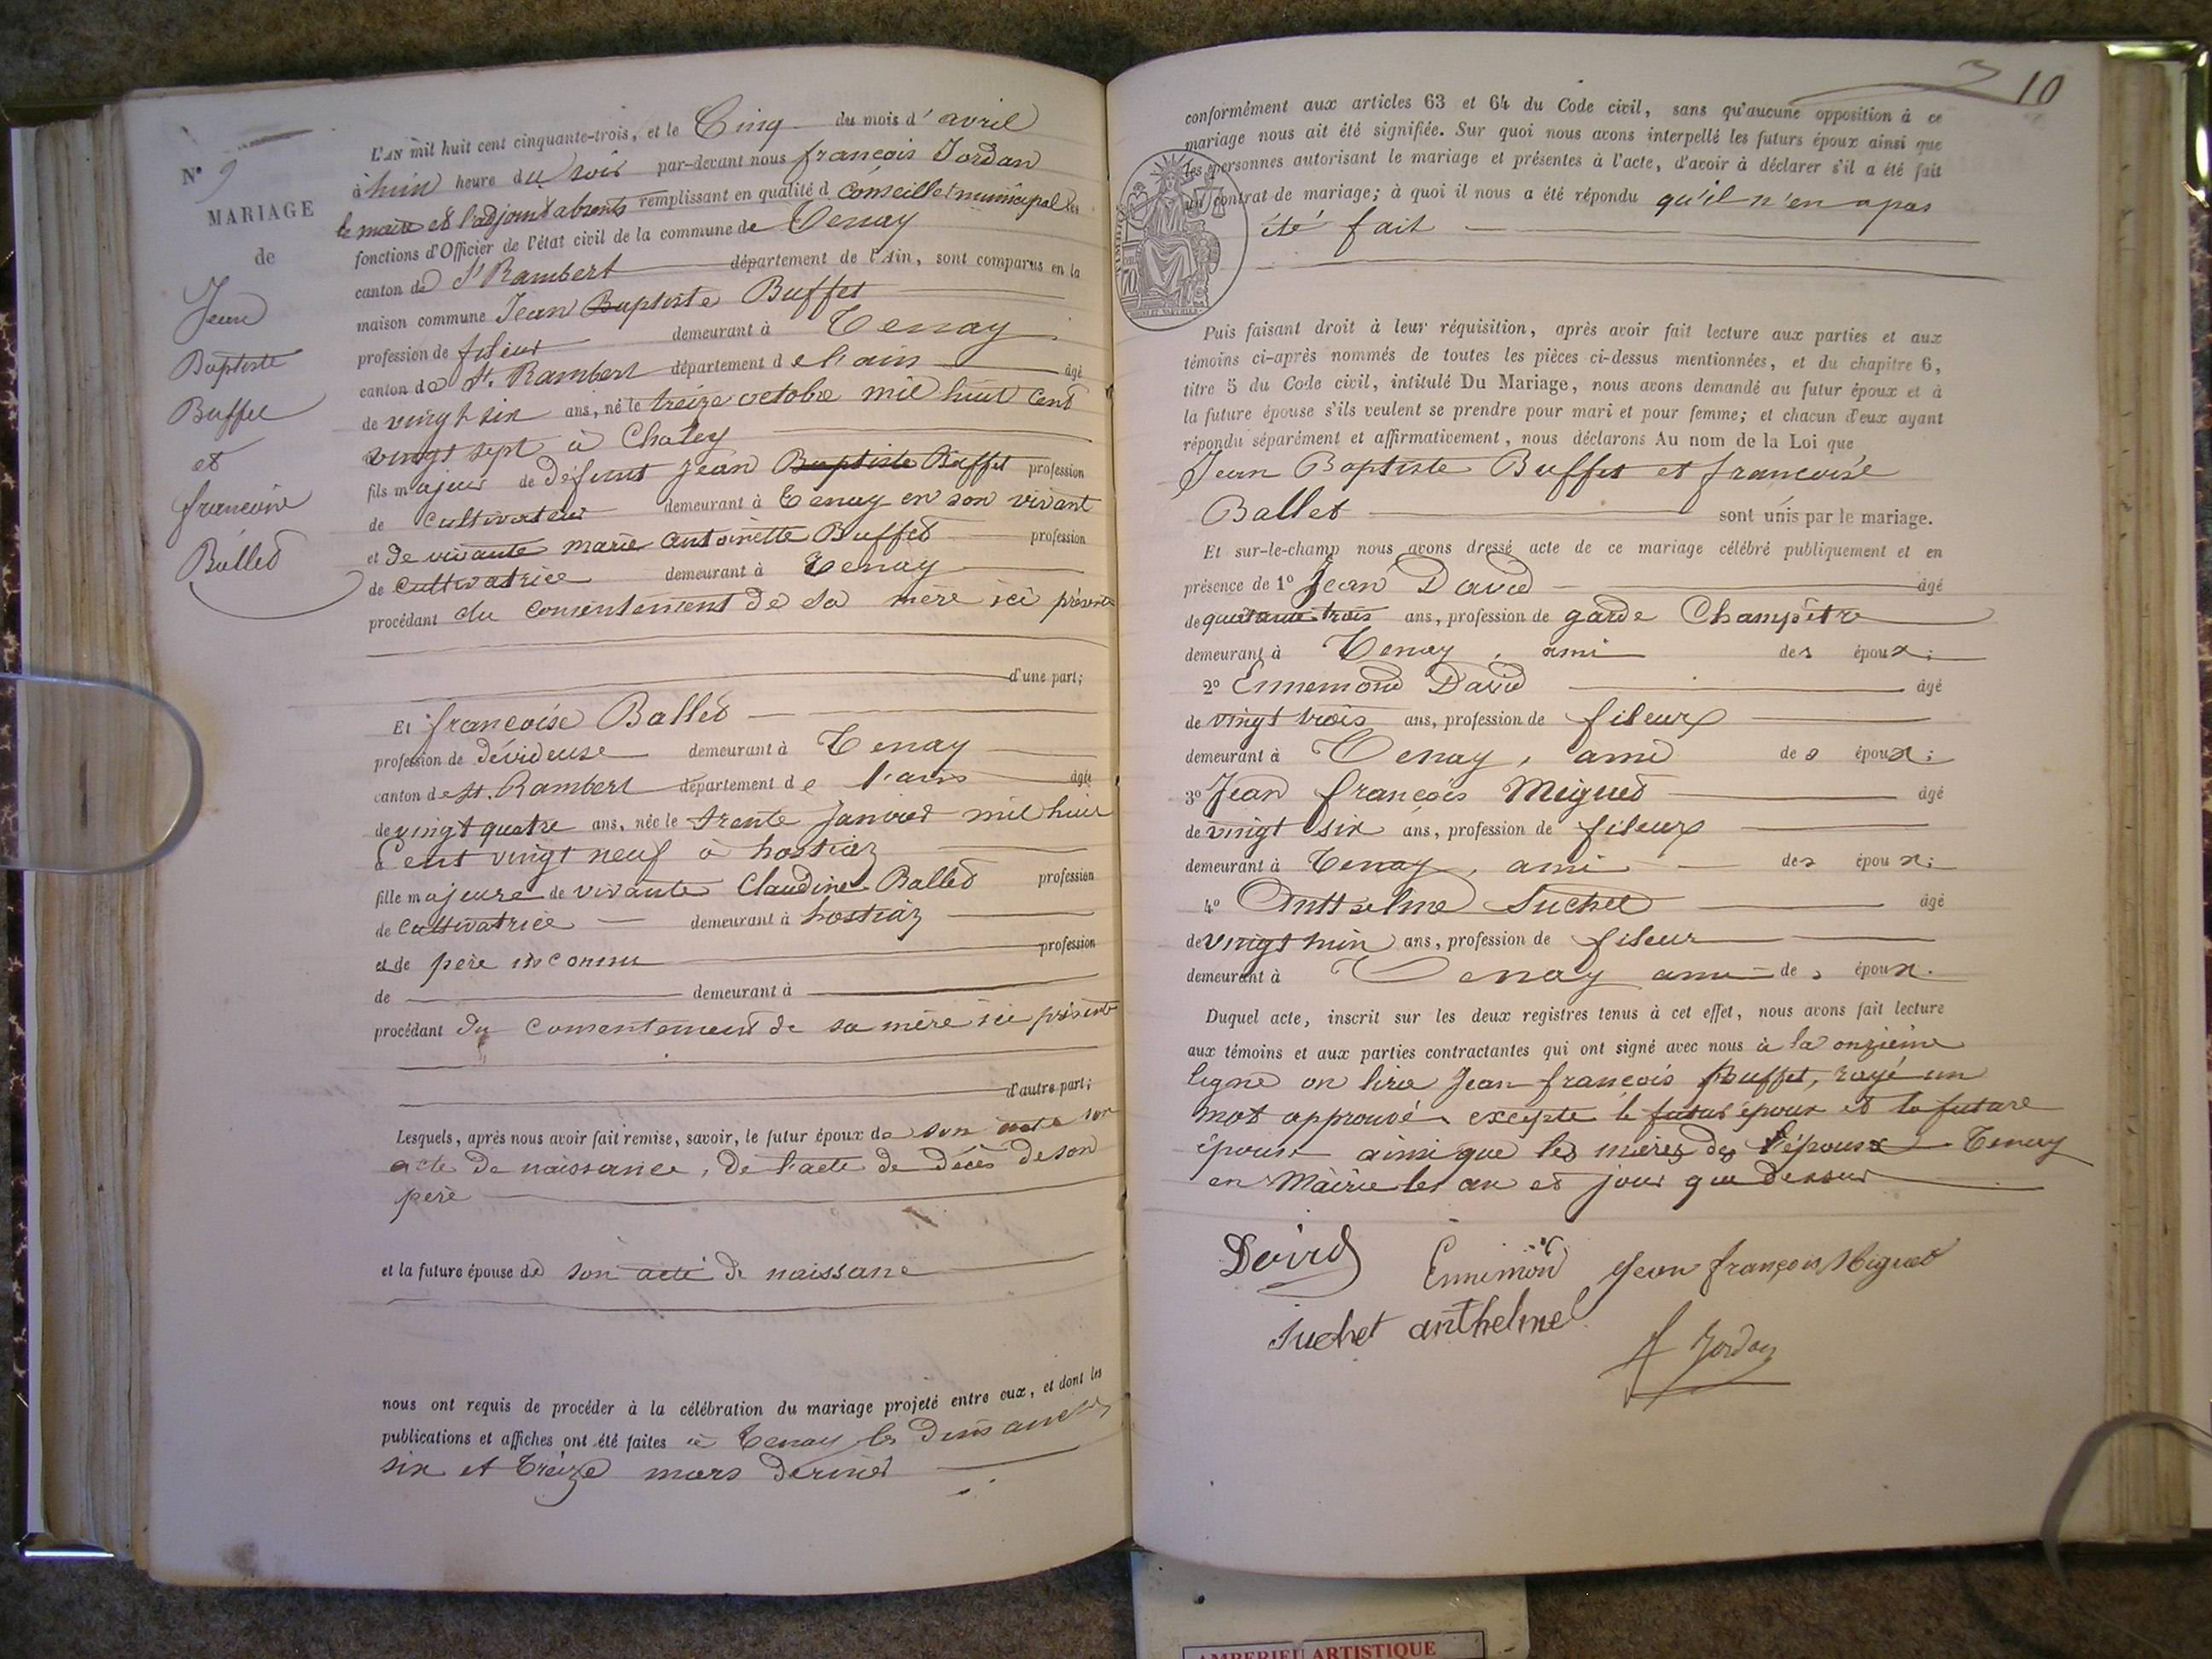 N° 9
MARIAGE
de
Jean
Baptiste
Buffet
et
francoise
Ballet
L'AN mil huit cent cinquante-trois, et le Cinq du mois d'avril
à huit heure du soir par-devant nous francois Jordan
le maire et l'adjoint absents remplissant en qualité d conseiller municipal les
fonctions d'Officier de l'état civil de la commune de Tenay
canton de St Rambert département de l'Ain, sont comparus en la
maison commune Jean Baptiste Buffet
profession de fileur demeurant à Tenay
canton de St. Rambert département de l'ain âgé
de vingt six ans, né le treize octobre mil huit cent
vingt sept à Chaley
fils majeur de défunt Jean Baptiste Buffet profession
de cultivateur demeurant à Tenay en son vivant
et de vivante marie antoinette Buffet profession
de cultivatrice demeurant à Tenay
procédant du consentement de sa mère ici présente
d'une part;
Et françoise Ballet
profession de dévideuse demeurant à Tenay
canton de St. Rambert département de l'ain âgée
de vingt quatre ans, née le trente Janvier mil huit
Cent vingt neuf à hostiaz
fille majeure de vivante Claudine Ballet profession
de cultivatrice demeurant à hostiaz
et de père inconnu profession
de demeurant à
procédant du consentement de sa mère ici présente
d'autre part;
Lesquels, après nous avoir fait remise, savoir, le futur époux de son acte son
acte de naissance, de l'acte de décès de son
père
et la future épouse de son acte de naissane
nous ont requis de procéder à la célébration du mariage projeté entre eux, et dont les
publications et affiches ont été faites à Tenay les dimanches
six et treize mars dernier
10
conformément aux articles 63 et 64 du Code civil, sans qu'aucune opposition à ce
mariage nous ait été signifiée. Sur quoi nous avons interpellé les futurs époux ainsi que
les personnes autorisant le mariage et présentes à l'acte, d'avoir à déclarer s'il a été fait
un contrat de mariage; à quoi il nous a été répondu qu'il n'en a pas
été fait
Puis faisant droit à leur réquisition, après avoir fait lecture aux parties et aux
témoins ci-après nommés de toutes les pièces ci-dessus mentionnées, et du chapitre 6,
titre 5 du Code civil, intitulé Du Mariage, nous avons demandé au futur époux et à
la future épouse s'ils veulent se prendre pour mari et pour femme; et chacun d'eux ayant
répondu séparément et affirmativement, nous déclarons Au nom de la Loi que
Jean Baptiste Buffet et francoise
Ballet sont unis par le mariage.
Et sur-le-champ nous avons dressé acte de ce mariage célébré publiquement et en
présence de 1° Jean David âgé
de quarante trois ans, profession de garde Champêtre
demeurant à Tenay, ami des époux;
2° Ennemond David âgé
de vingt trois ans, profession de fileur
demeurant à Tenay, ami des époux;
3° Jean françois Miguet âgé
de vingt six ans, profession de fileur
demeurant à Tenay, ami des époux;
4° Anthelme Suchet âgé
de vingt huit ans, profession de fileur
demeurant à Tenay ami des époux.
Duquel acte, inscrit sur les deux registres tenus à cet effet, nous avons fait lecture
aux témoins et aux parties contractantes qui ont signé avec nous à la onzième
ligne on lira Jean françois Buffet, rayé un
mot approuvé. excepté le futur époux et la future
épouse ainsi que les mères des époux Tenay
en Mairie les an et jour que dessus
David Ennemond Jean françois Miguet
Suchet anthelme
f Jordan
AMBERIEU ARTISTIQUE